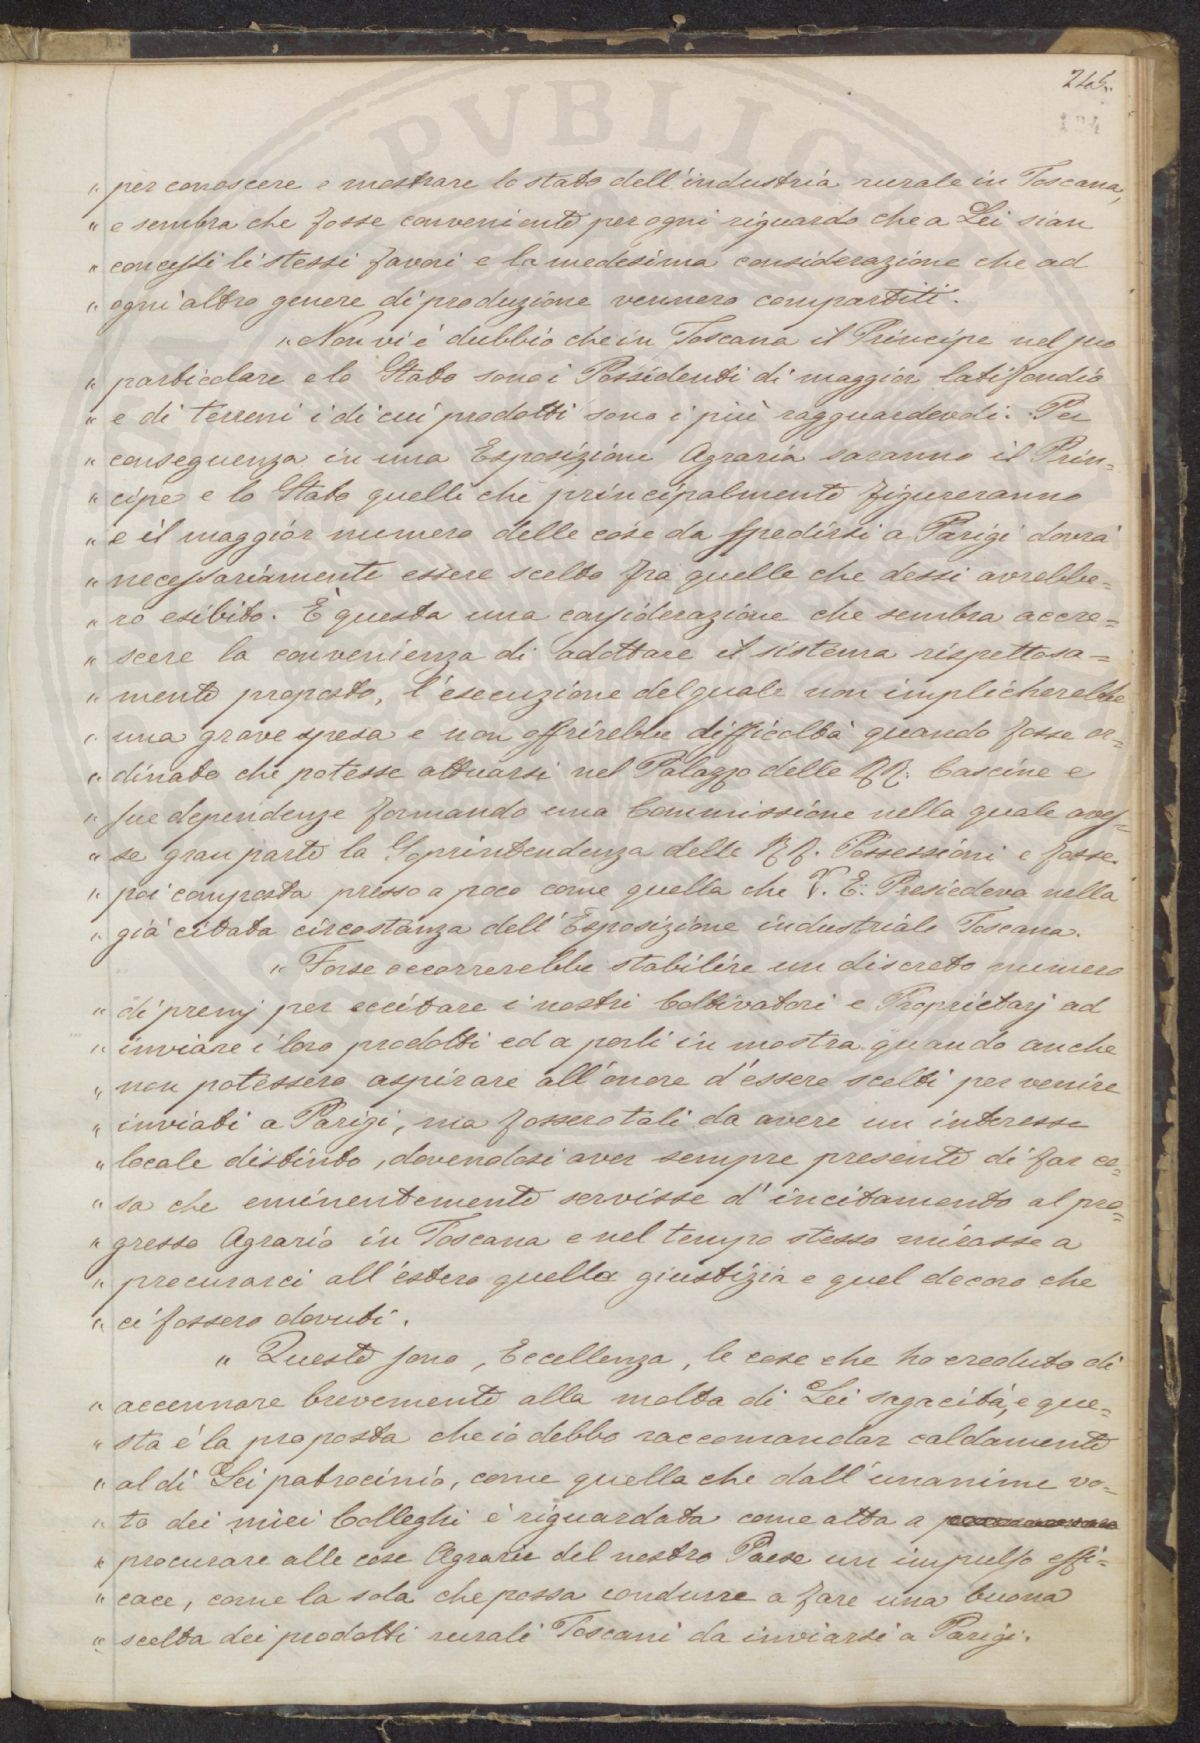 245.
194
" per conoscere e mostrare lo stato dell'industria rurale in Toscana,
" e sembra che fosse conveniente per ogni riguardo che a Lei sian
" concessi li stessi favori e la medesima considerazione che ad
" ogni altro genere di produzione vennero compartiti.
" Non vi è dubbio che in Toscana il Principe nel suo
" particolare e lo Stato sono i Possidenti di maggior latifondio
" e di terreni i di cui prodotti sono i più ragguardevoli. Per
" conseguenza in una Esposizione Agraria saranno il Prin=
" cipe e lo Stato quelli che principalmente figureranno
" e il maggior numero delle cose da spedirsi a Parigi dovrà
" necessariamente essere scelto fra quelle che dessi avrebbe=
" ro esibito. È questa una considerazione che sembra accre=
" scere la convenienza di adottare il sistema rispettosa=
" mente proposto, l'esecuzione del quale non implicherebbe
" una grave spesa e non offrirebbe difficoltà quando fosse or=
" dinato che potesse attuarsi nel Palazzo delle RR. Cascine e
" sue dependenze formando una Commissione nella quale aves=
" se gran parte la Soprintendenza delle RR. Possessioni e fosse
" poi composta presso a poco come quella che V. E. Presiedeva nella
" già citata circostanza dell'Esposizione industriale Toscana.
" Forse occorrerebbe stabilire un discreto numero
" di premj per eccitare i nostri Coltivatori e Proprietarj ad
" inviare i loro prodotti ed a porli in mostra quando anche
" non potessero aspirare all'onore d'essere scelti per venire
" inviati a Parigi, ma fossero tali da avere un interesse
" locale distinto, dovendosi aver sempre presente di far co=
" sa che eminentemente servisse d'incitamento al pro=
" gresso Agrario in Toscana e nel tempo stesso mirasse a
" procurarci all'estero quella giustizia e quel decoro che
" ci fossero dovuti.
" Queste sono, Eccellenza, le cose che ho creduto di
" accennare brevemente alla molta di Lei sagacità, e que=
" sta è la proposta che io debbo raccomandar caldamente
" al di Lei patrocinio, come quella che dall'unanime vo=
" to dei miei Colleghi è riguardata come atta a
" procurare alle cose Agrarie del nostro Paese un impulso effi=
" cace, come la sola che possa condurre a fare una buona
" scelta dei prodotti rurali Toscani da inviarsi a Parigi.